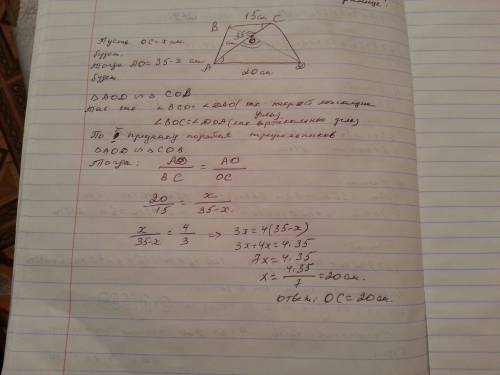 15см.
B C
35
O
см
A D
20см
Пусть OC = x см.
будет.
Тогда AO = 35-x см
будет
△ AOD ∽ △ COB
так как ∠BCO = ∠DAO (как накрест лежащие
углы)
∠BOC = ∠DOA (как вертикальные углы
По I признаку подобия треугольников:
△AOD ∽ △COB.
Тогда: AD/BC = AO/OC
20/15 = x/35-x.
x/35-x = 4/3 ⇒ 3x = 4(35-x)
3x+4x = 4.35
7x = 4.35
x = 4.35/7 = 20см.
ответ: OC = 20см.